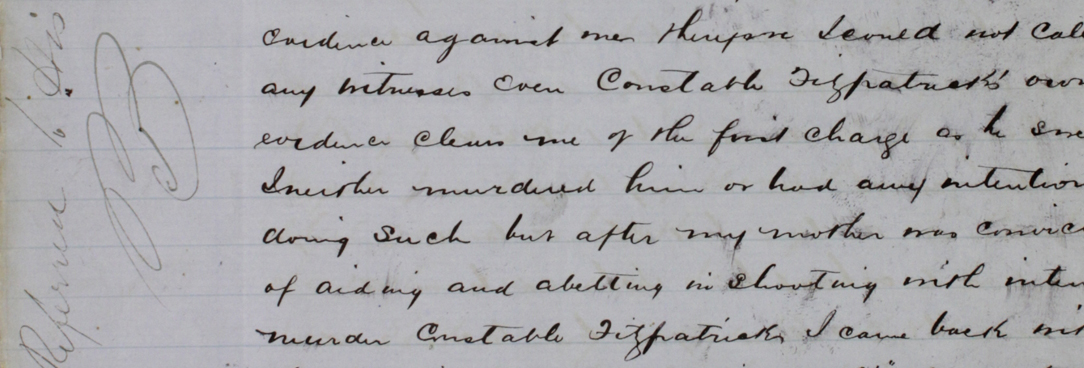 evidence against me therefore I could not call
any witnesses even Constable Fitzpatricks own
evidence clears me of the first charge as he
I neither murdered him or had any intention
doing such but after my mother was convic
of aiding and abetting in shooting with inten
murder Constable Fitzpatrick I came back
Reference to